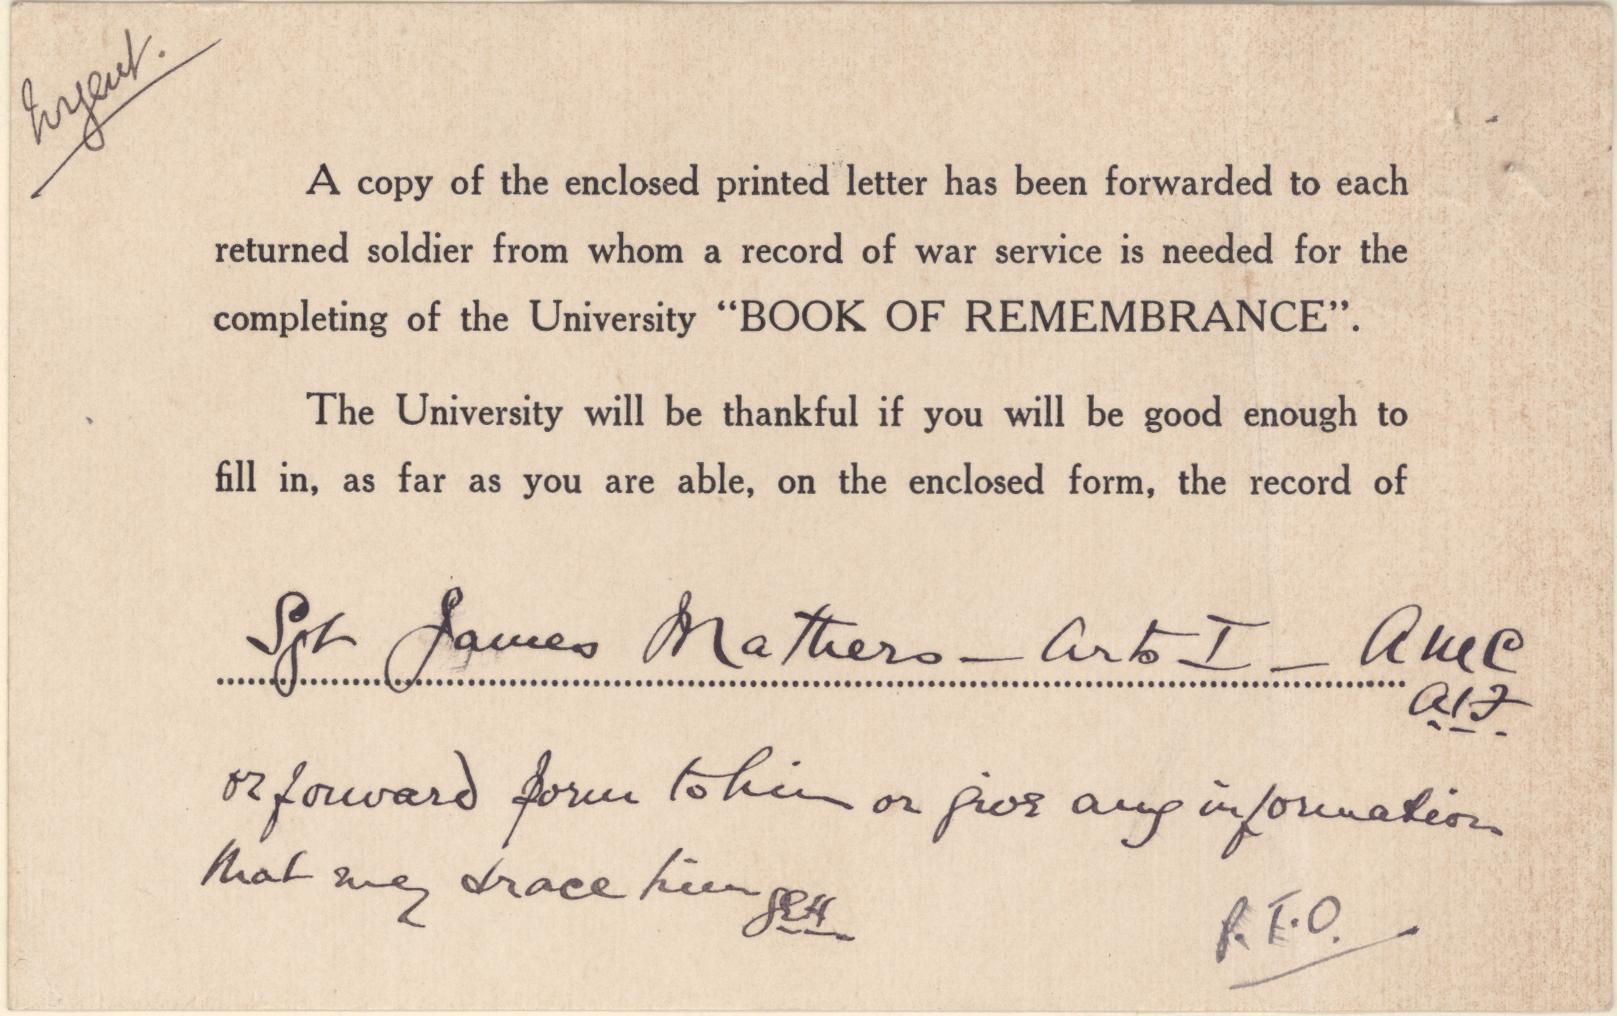 Urgent.
A copy of the enclosed printed letter has been forwarded to each
returned soldier from whom a record of war service is needed for the
completing of the University “BOOK OF REMEMBRANCE”.
The University will be thankful if you will be good enough to
fill in, as far as you are able, on the enclosed form, the record of
Sgt James Mathers – Arts I – AMC
AIF
or forward form to him or give any information
that may trace him
P.T.O.